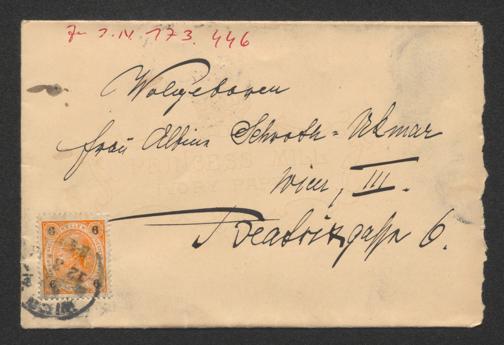 Zu I.N. 173.446
Wolgeboren
Frau Albine Schroth-Ukmar
Wien, III.
Beatrixgasse 6.
6 6
WIEN